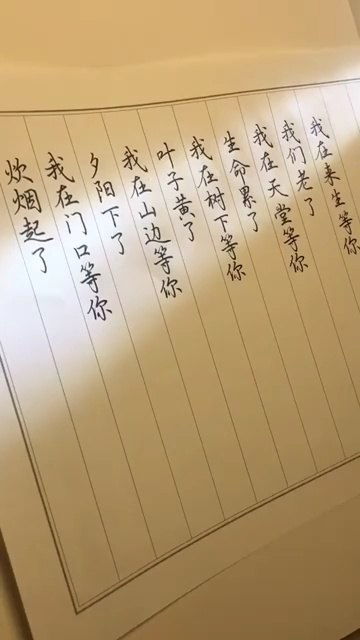 炊烟起了
我在门口等你
夕阳下了
我在山边等你
叶子黄了
我在树下等你
生命累了
我在天堂等你
我们老了
我在来生等你